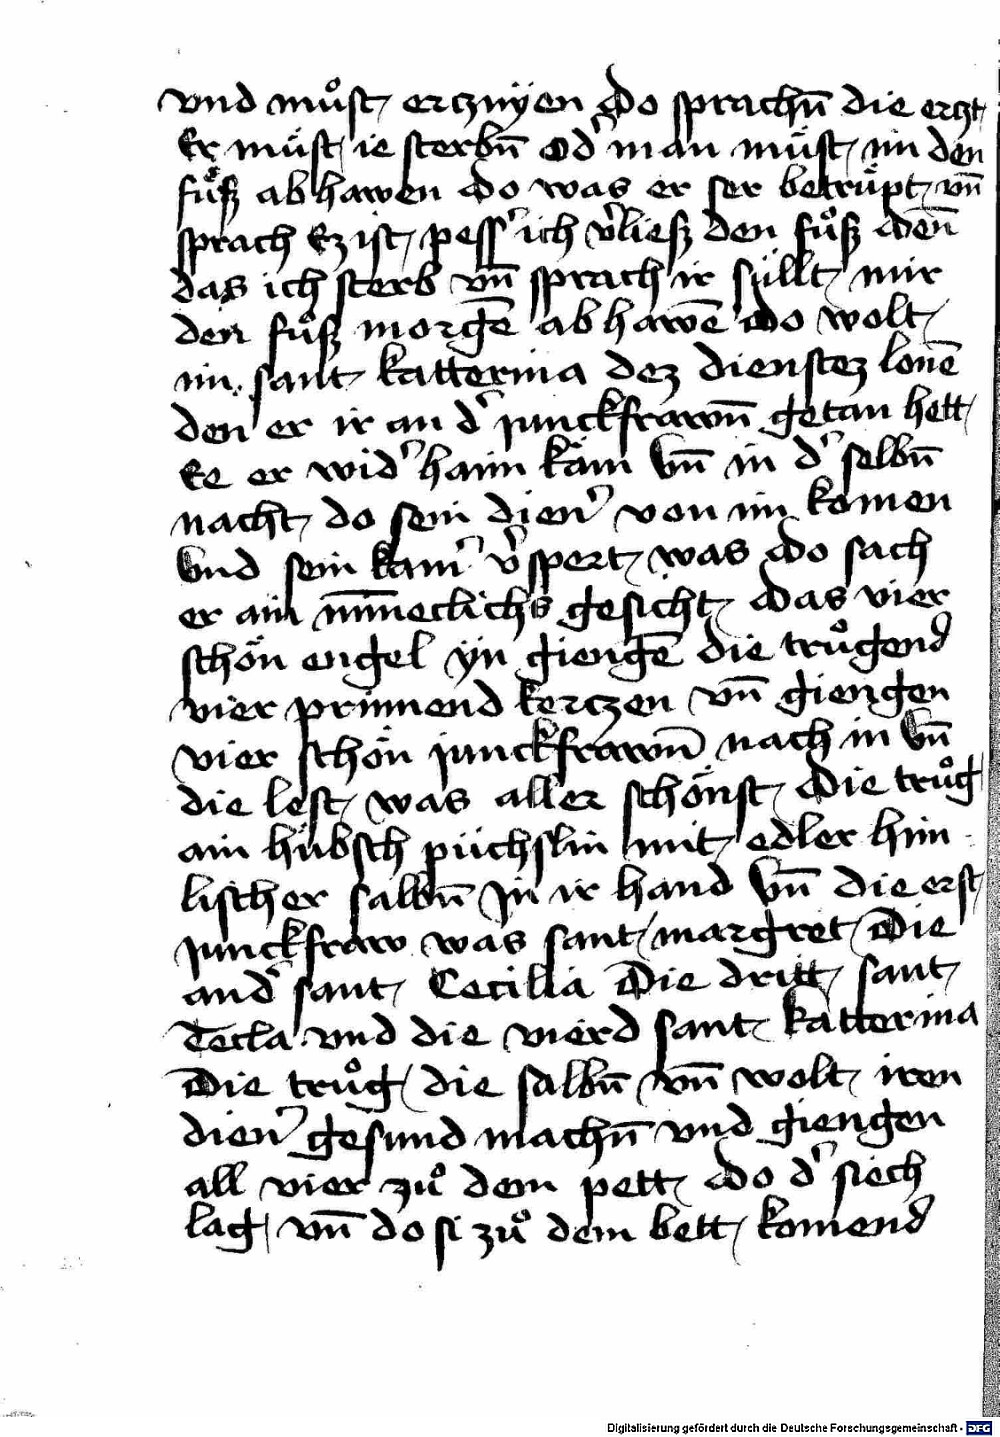 vnd můst ercznÿen Do sprachn̄ die erczt
Er müst ie sterbn̄ Od' man müst im den
fůß ab hawen Do was er ser betrüpt vn̄
sprach Ez ist pess' ich v'ließ den fůß den̄
das ich sterb vn̄ sprach ir süllt mir
den fůß morgē ab hawē Do wolt
im sant katterina dez dienstez lonē
den er ir an d' junckfrawn̄ getan hett
Ee er wid' haim käm vn̄ in d' selbn̄
nacht do sein dien' von im komen
vnd sein kam' v'spert was do sach
er ain mīneclichs gesicht Das vier
schön engel yn giengē die trůgend
vier prinnend kerczen vn̄ giengen
vier schön junckfrawn̄ nach in vn̄
die lest was aller schönst Die trůg
ain hübsch püchslin mit edler him
lischer salbn̄ Jn ir hand vn̄ die erst
junckfraw was sant margret Die
and' sant Cecilia Die dritt sant
Tecla vnd die vierd sant katterina
Die trůg die salbn̄ vn̄ wolt iren
dien' gesund machn̄ vnd giengen
all vier zů dem pett do d' siech
lag vn̄ do si zů dem bett komend
Digitalisierung gefördert durch die Deutsche Forschungsgemeinschaft - DFG